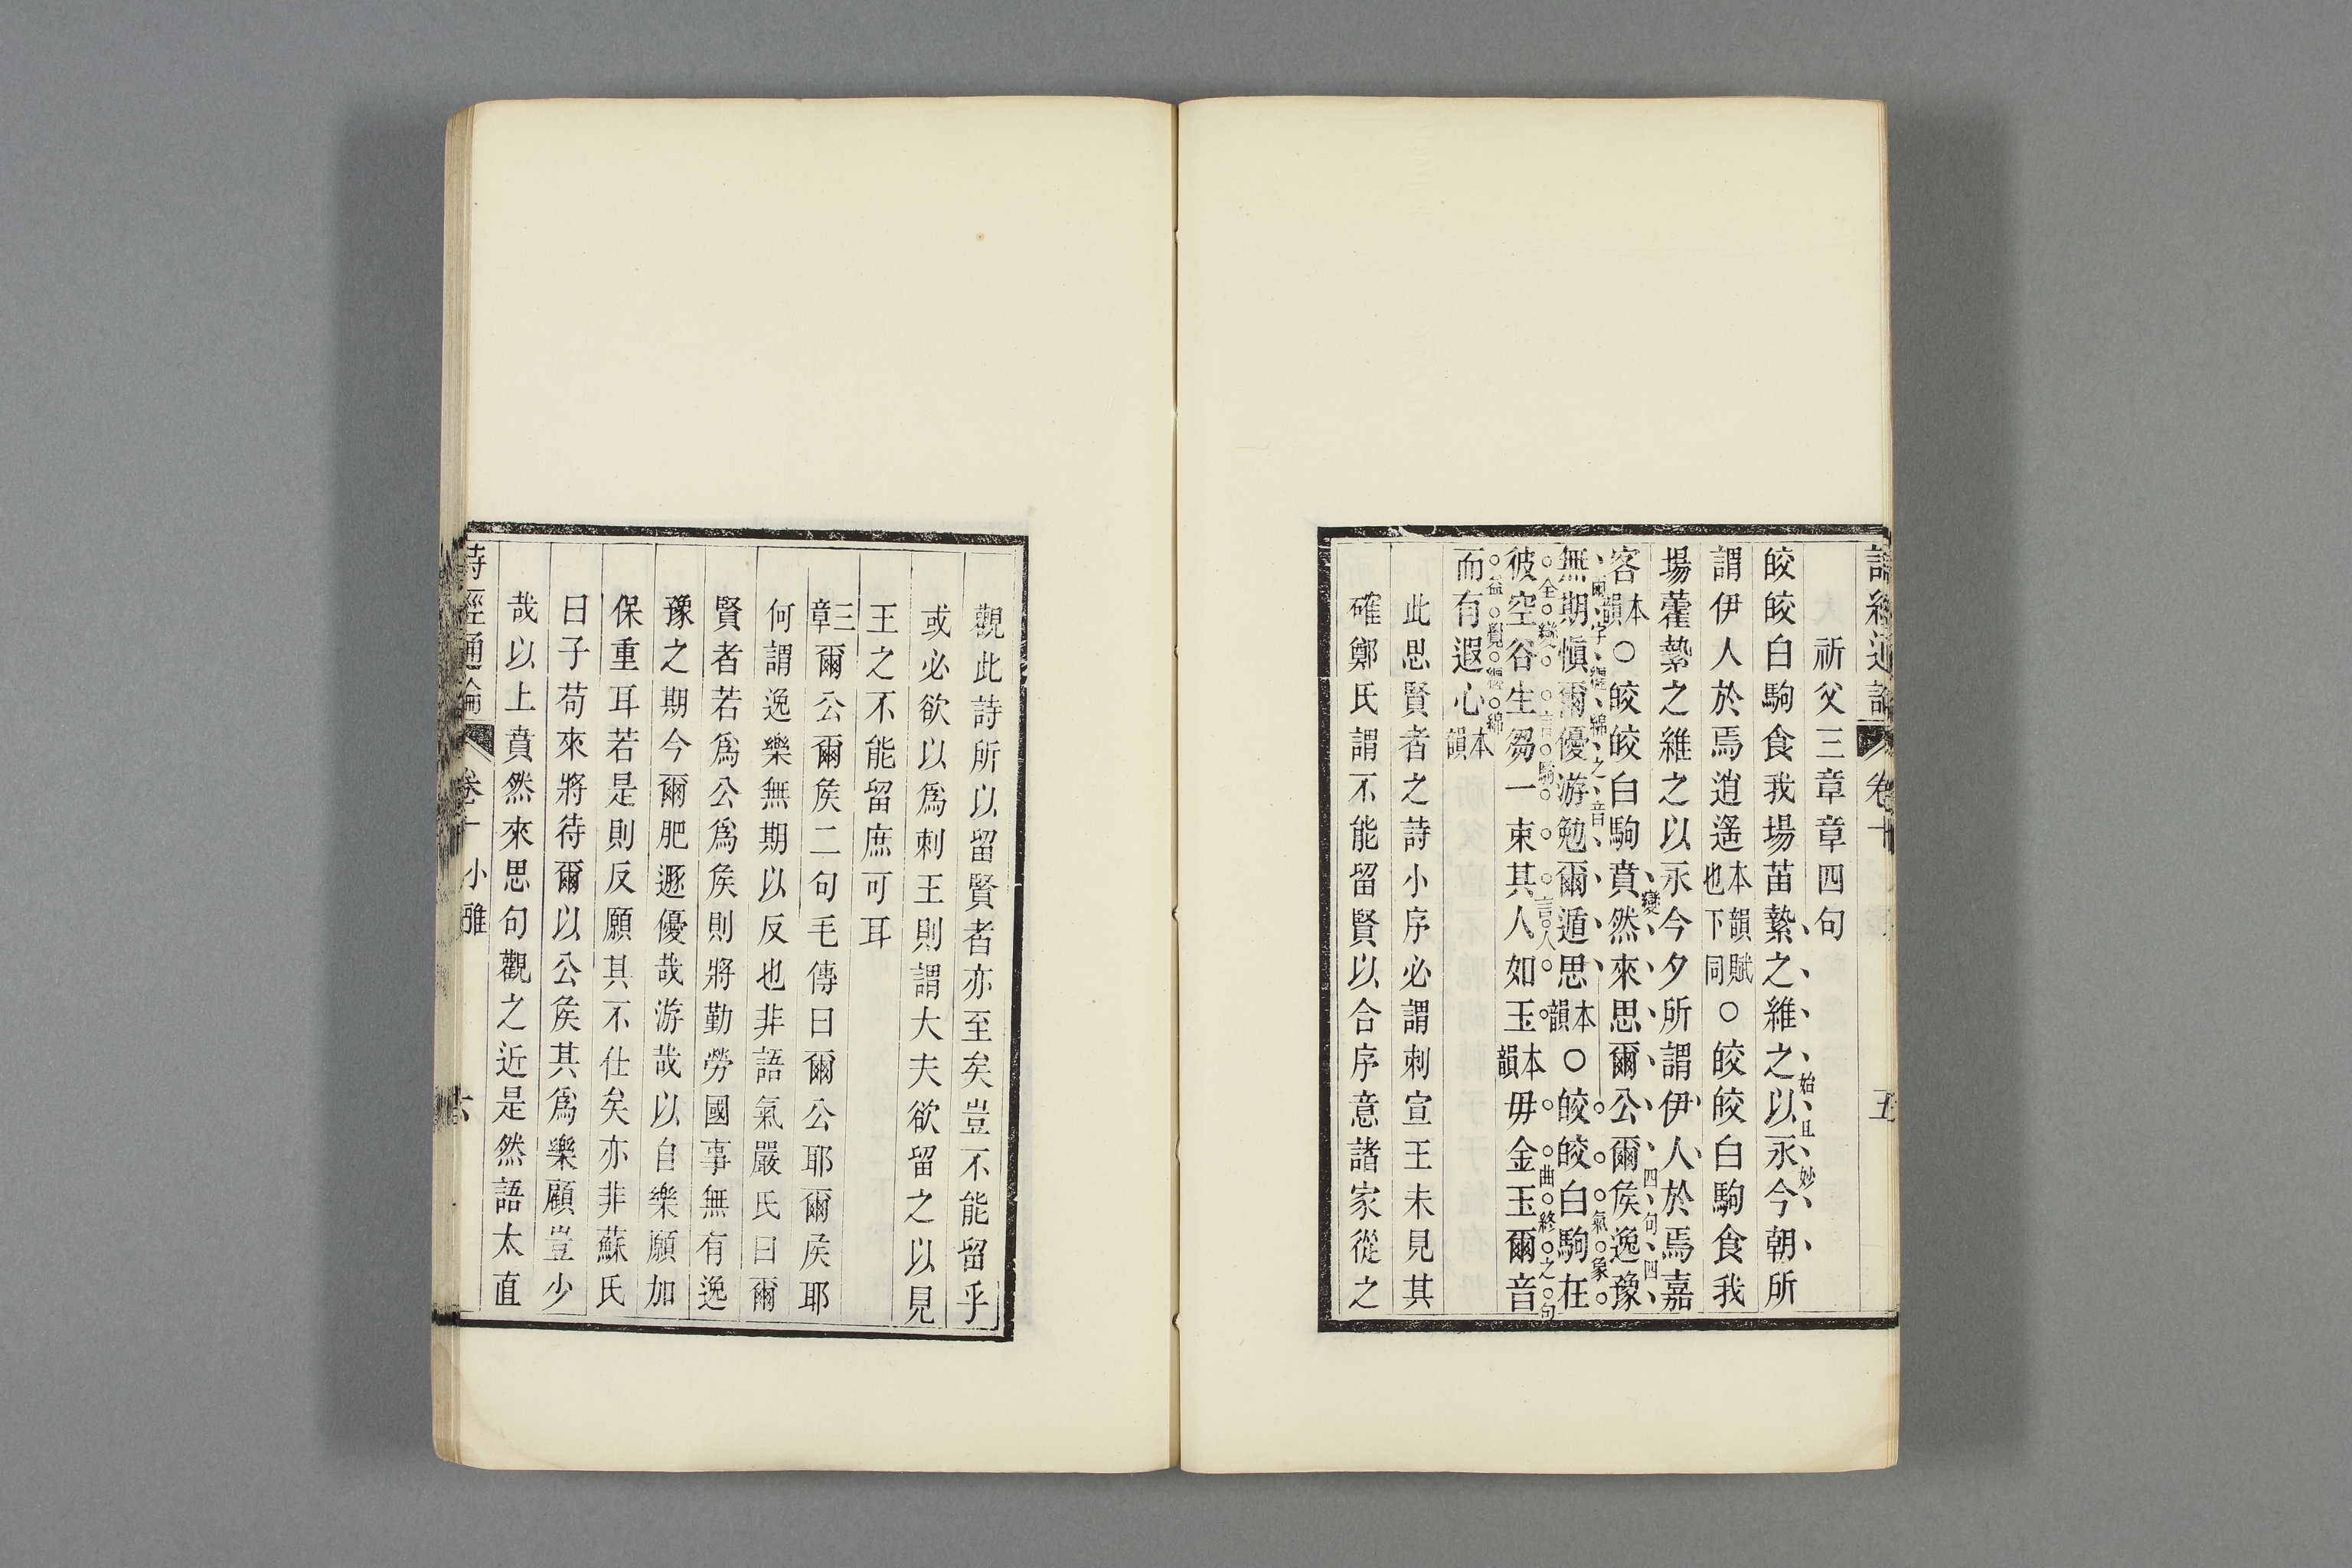 詩經通論 卷十 五
祈父三章章四句
皎皎白駒食我場苗縶之維之以永今朝所
始且妙
謂伊人於焉逍遙本韻賦也下同○皎皎白駒食我
場藿縶之維之以永今夕所謂伊人於焉嘉
變四句四
客本韻○皎皎白駒賁然來思爾公爾侯逸豫
字纏綿之音氣象
無期慎爾優游勉爾遁思本韻○皎皎白駒在
全變言駒言人曲終之句
彼空谷生芻一束其人如玉本韻毋金玉爾音
益覺纏綿
而有遐心本韻
此思賢者之詩小序必謂刺宣王未見其
確鄭氏謂不能留賢以合序意諸家從之
觀此詩所以留賢者亦至矣豈不能留乎
或必欲以爲刺王則謂大夫欲留之以見
王之不能留庶可耳
三章爾公爾侯二句毛傳曰爾公耶爾侯耶
何謂逸樂無期以反也非語氣嚴氏曰爾
賢者若爲公爲侯則將勤勞國事無有逸
豫之期今爾肥遯優哉游哉以自樂願加
保重耳若是則反願其不仕矣亦非蘇氏
曰子苟來將待爾以公侯其爲樂顧豈少
哉以上賁然來思句觀之近是然語太直
詩經通論 卷十 小雅 六